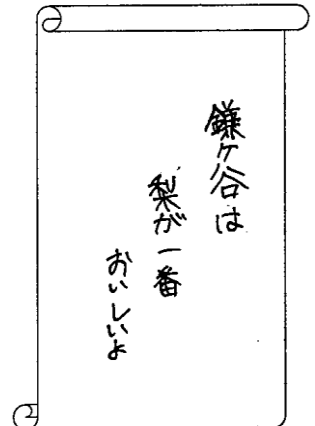 鎌ヶ谷は
梨が一番
おいしいよ